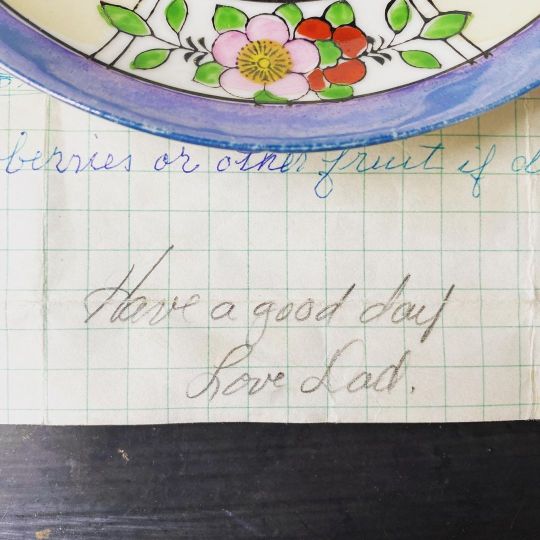 berries or other fruit if
Have a good day
Love Dad.